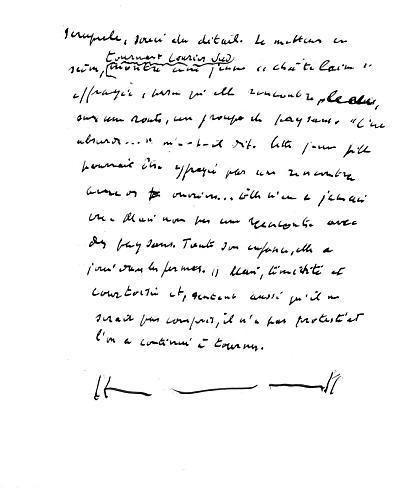 scrupule, souci du détail. Le metteur en
tournant Courrier Sud
scène, montre une jeune "châtelaine"
effrayée, parce qu'elle rencontre,
sur une route, un groupe de paysans. "C'est
absurde..." m'a-t-il dit. Cette jeune fille
pourrait être effrayée par une rencontre
avec des ouvriers... elle n'en a jamais
vu. Mais non par une rencontre avec
des paysans. Toute son enfance, elle a
joué dans les fermes. " Mais, timidité et
courtoisie et, sentant aussi qu'il ne
serait pas compris, il n'a pas protesté et
l'on a continué à tourner.